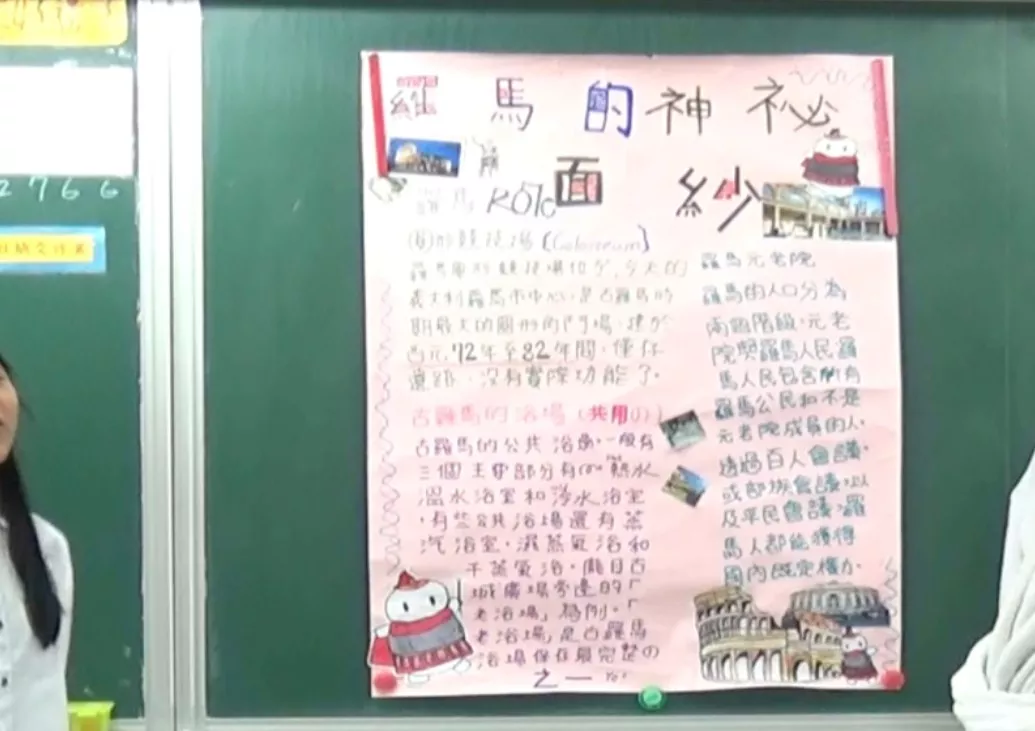 2766
羅馬的神祕
面紗
羅馬
羅馬競技場 (Colosseum)
義大利羅馬市中心,是古羅馬時
期最大的圓形角鬥場,建於
西元72年至82年間,僅存
遺跡,沒有實際功能了。
古羅馬的浴場(共用の)
古羅馬的公共浴場,一般有
三個主要部分有 熱水
溫水浴室和冷水浴室
,有些公共浴場還有蒸
汽浴室,濕蒸氣浴和
干蒸氣浴,龐貝古
城廣場旁邊的「
老浴場」為例,「
老浴場」是古羅馬
浴場保存最完整の
之一
羅馬元老院
羅馬的人口分為
兩個階段,元老
院與羅馬人民羅
馬人民包含所有
羅馬公民和不是
元老院成員的人,
透過百人會議,
或部族會議,以
及平民會議,羅
馬人都能獲得
國內既定權力.